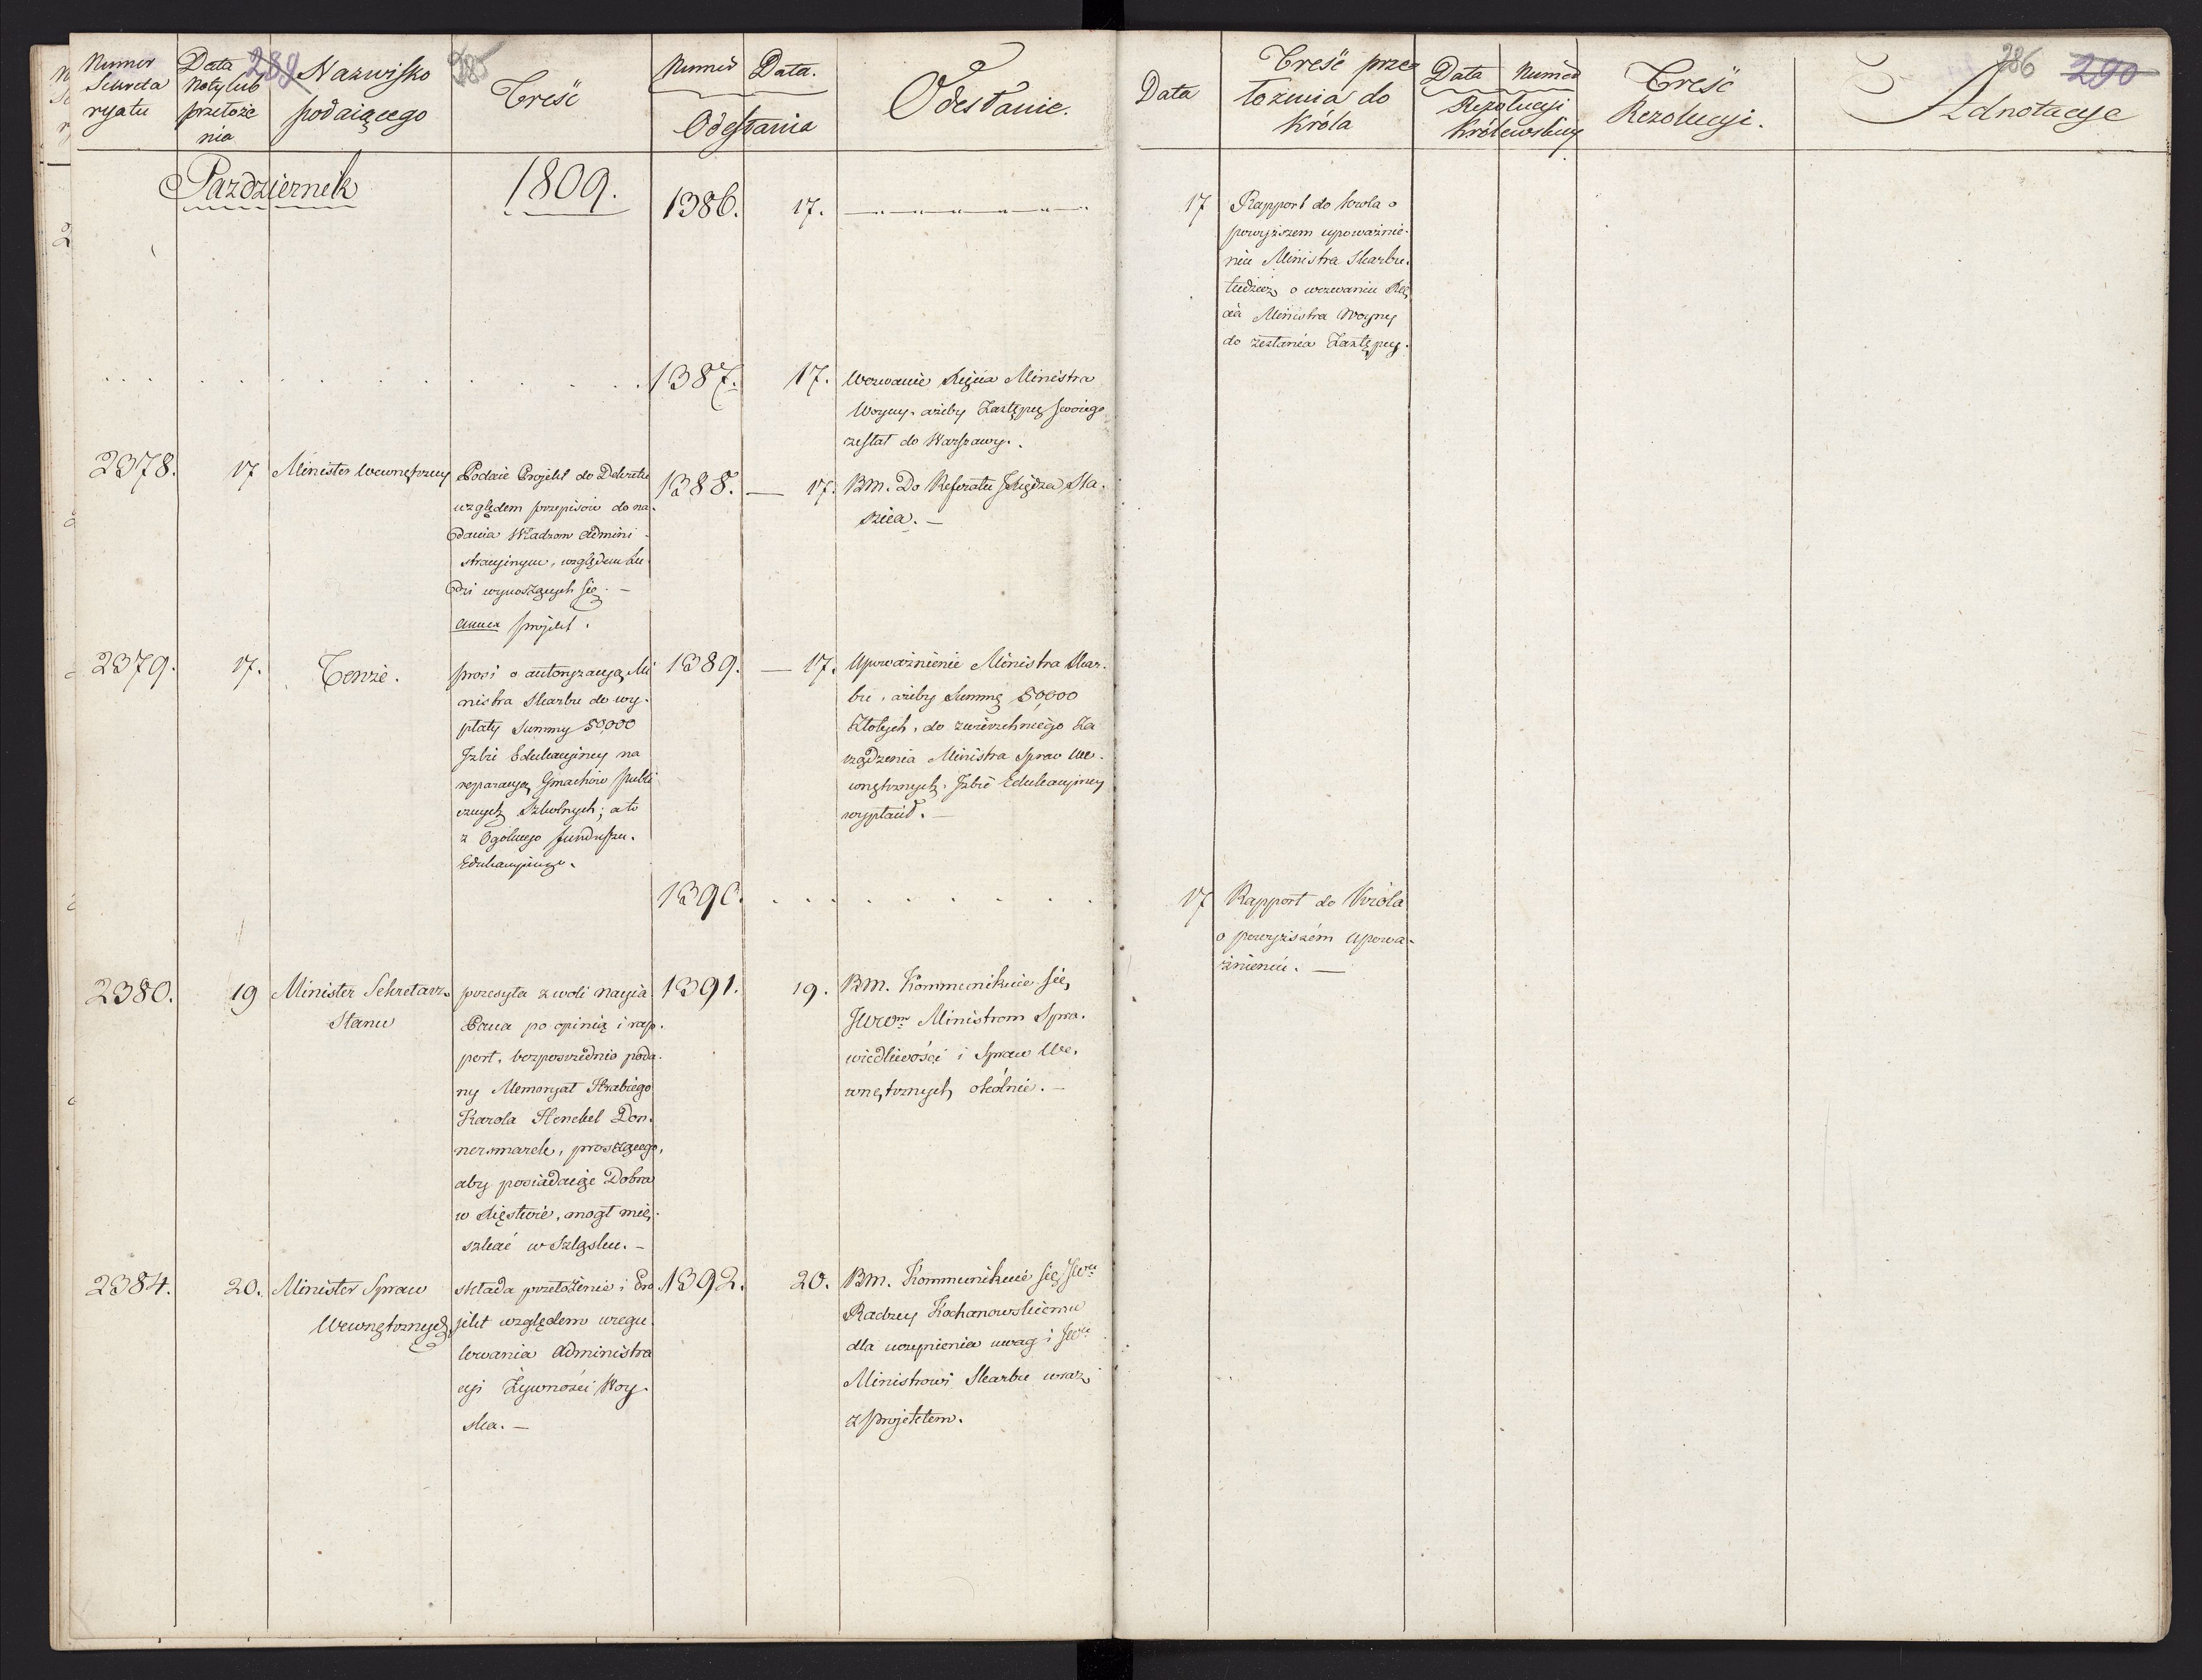 Numer
Sekreta
ryatu
Data
Noty lub
przełoże
nia
289
Nazwisko
podaiącego
285
Treść
Numer
Data.
Odesłania
Odesłanie.
Pazdziernik
1809.
1386.
17.
1387.
17.
Wezwanie Xięcia Ministra
Woyny, ażeby Zastępcę swoiego
zesłał do Warszawy.
2378.
17
Minister Wewnętrzny
Podaie Projekt do Dekretu
względem przepisów do na-
dania Władzom Admini-
stracyinym, względem Lu-
dzi wynoszących się. —
Annex projekt.
1388. —
17.
BM. Do Referatu Xiędza Sta-
szica. —
2379.
17.
Tenże.
prosi o autoryzacyą Mi
nistra Skarbu do wy-
płaty Summy 50,000
Izbie Edukacyiney na
reparacyą Gmachów publi
cznych Szkolnych; a to
z Ogólnego funduszu
Edukacyinego.
1389. —
17.
Upoważnienie Ministra Skar-
bu, ażeby Summę 50,000
Złotych, do zwierzchniego Za
rządzenia Ministra Spraw We-
wnętrznych, Izbie Edukacyiney
wypłacił. —
1390.
2380.
19
Minister Sekretarz
Stanu
przesyła z woli Nayia
Pana po opinią i rap-
port, bezpośrednio poda-
ny Memoryał Hrabiego
Karola Henckel Don-
nersmarck, proszącego,
aby posiadaiąc Dobra
w Xięstwie, mógł mie-
szkać w Szląsku. —
1391.
19.
BM. Kommunikuie się
JWWm Ministrom Spra-
wiedliwości i Spraw We-
wnętrznych okólnie. —
2384.
20.
Minister Spraw
Wewnętrznych
składa przełożenie i Pro
jekt względem uregu-
lowania Administra
cyi Żywności Woy-
ska. —
1392.
20.
BM. Kommunikuie się JWu
Radzcy Kochanowskiemu
dla uczynienia uwag i JWu
Ministrowi Skarbu wraz
z projektem.
Data
Treść prze
łożenia do
Króla
Data
Numer
Rezolucyi
Królewskiey
Treść
Rezolucyi.
286
290
Adnotacye
17
Rapport do Króla o
powyższem upoważnie-
niu Ministra Skarbu,
tudzież o wezwaniu Xię
cia Ministra Woyny
do zesłania Zastępcy.
17
Rapport do Króla
o powyższém upowa-
żnieniu. —